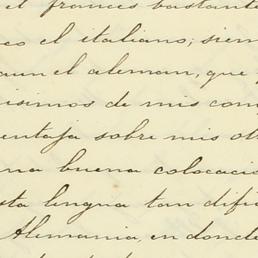 el frances bastante
co el italiano; siem
aun el aleman, que
isimos de mis com
entaja sobre mis ot
na buena colocacio
sta lengua tan difi
Alemania, en donde